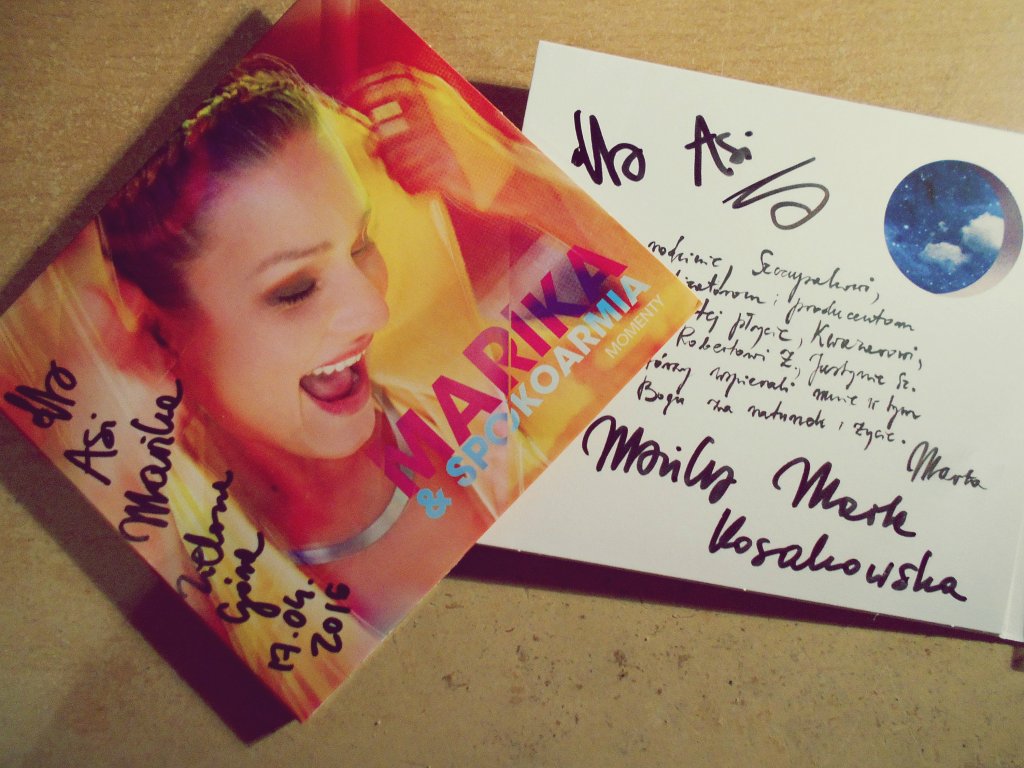 MARIKA
& SPOKOARMIA
MOMENTY
dla
Asi
Marika
Zielona
Góra
17.04.
2016
dla Asi
rodzinie Szczypałowi,
i producentom
tej płycie, Kwazarowi,
Robertowi Z., Justynie Sz.
wspierali mnie w tym
Bogu za ratunek i życie.
Marta
Marika Marta
Kosakowska